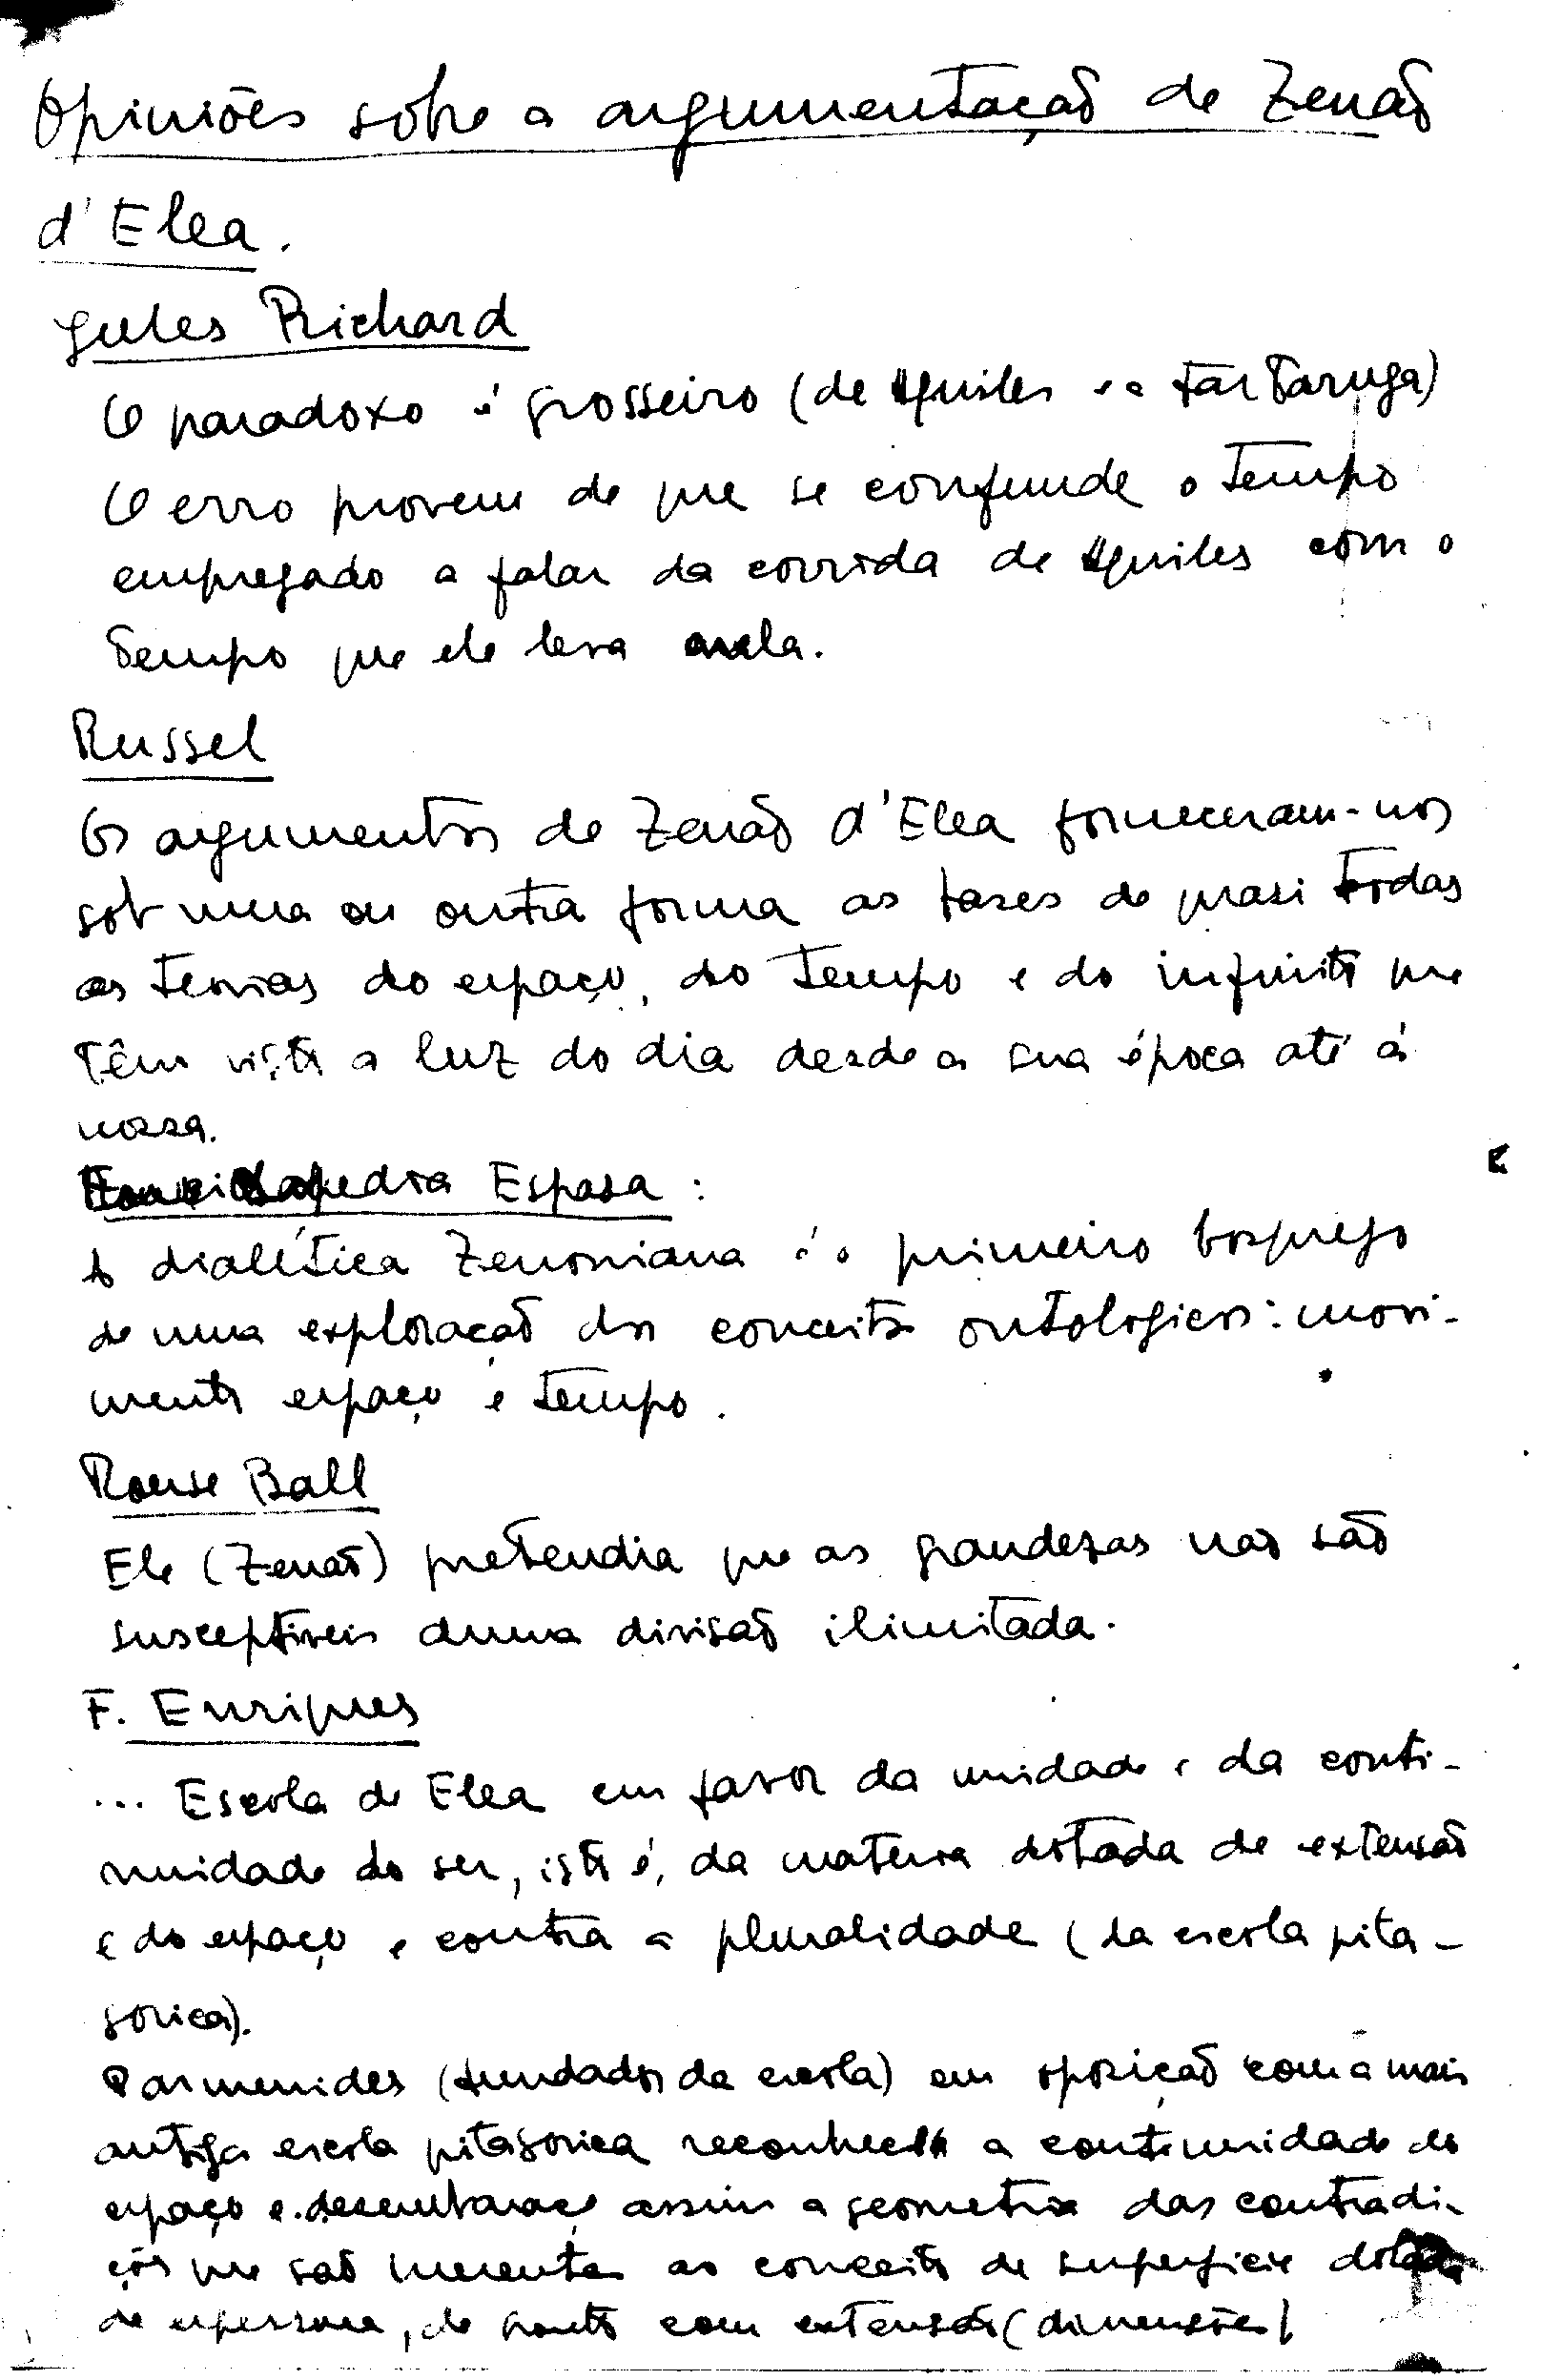 Opiniões sobre a argumentação de Zenão
d'Elea.
Jules Richard
O paradoxo é grosseiro (de Aquiles e a tartaruga)
O erro provem de que se confunde o tempo
empregado a falar da corrida de Aquiles com o
tempo que ele leva nela.
Russel
Os argumentos de Zenão d'Elea forneceram-nos
sob uma ou outra forma as bases de quasi todas
as teorias do espaço, do tempo e do infinito que
têm visto a luz do dia desde a sua época até á
nossa.
Enciclopedia Espasa:
A dialética Zenoniana é o primeiro bosquejo
de uma exploração dos conceitos ontologicos: movi-
mento espaço e tempo.
Rouse Ball
Ele (Zenão) pretendia que as grandezas não são
susceptiveis duma divisão ilimitada.
F. Enriques
... Escola de Elea em favor da unidade e da conti-
nuidade do ser, isto é, da materia dotada de extensão
e do espaço e contra a pluralidade (da escola pita-
gorica).
Parmenides (fundador da escola) em oposição com a mais
antiga escola pitagorica reconhece a continuidade do
espaço e desembaraça assim a geometria das contradi-
ções que são inerentes ao conceito de superficie dotada
de espessura, de ponto com extensão (dimensões)